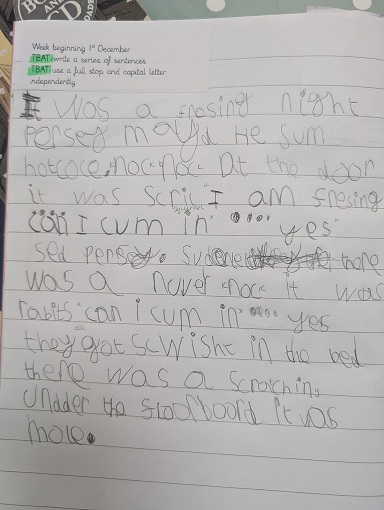 Week beginning 1st December
TBAT write a series of sentences
TBAT use a full stop and capital letter
independently
It was a fresing night
persey mayd He sum
hotcoco, nocknoc at the door
it was scril "I am fresing
can I cum in" "yes"
sed persey. sudene there
was a nuver knock it was
rabits "can i cum in" yes
they all got scwisht in the bed
there was a scratching
undder the floorboord it was
mole.